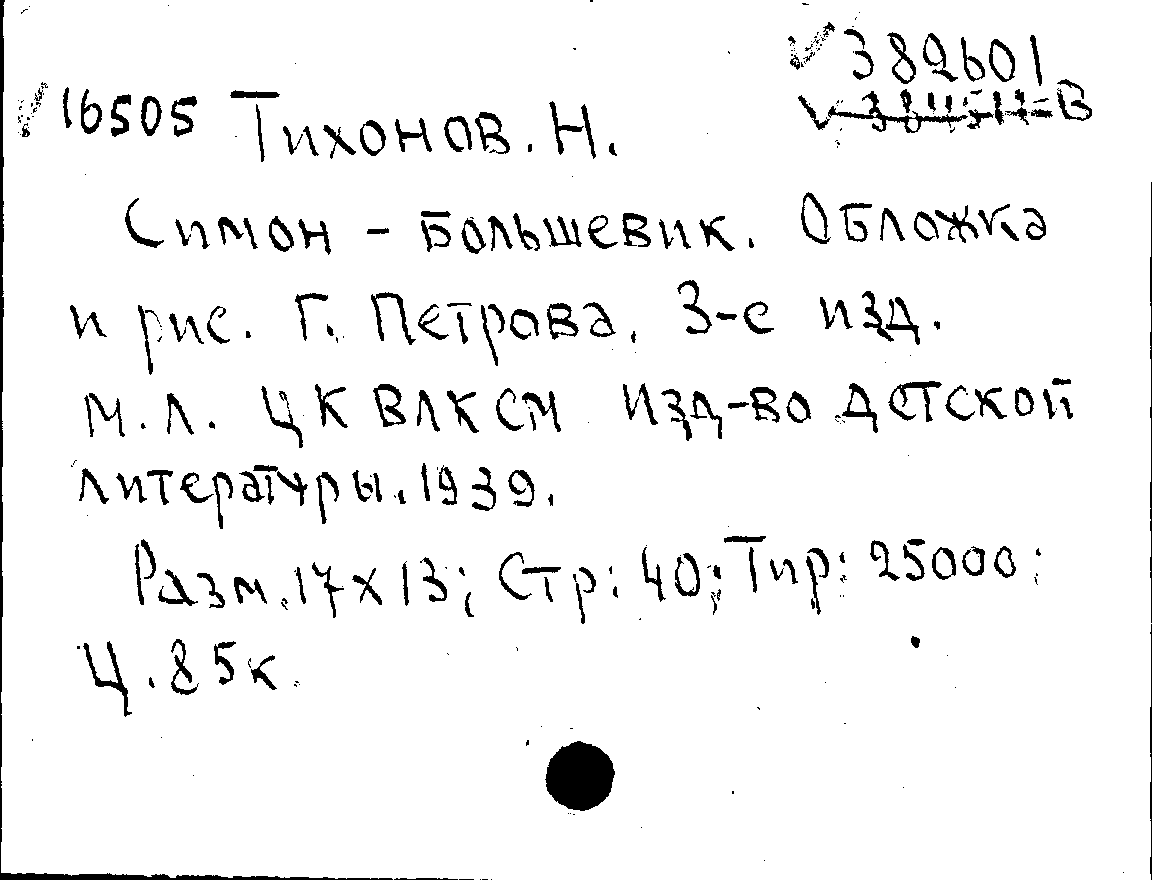 382601
16505 Тихонов. Н.
Симон - Большевик. Обложка
и рис. Г. Петрова. 3-е изд.
М.Л. ЦК ВЛКСМ Изд-во детской
литературы. 1939.
Разм. 17x13; Стр: 40; Тир: 25000;
Ц. 85к.